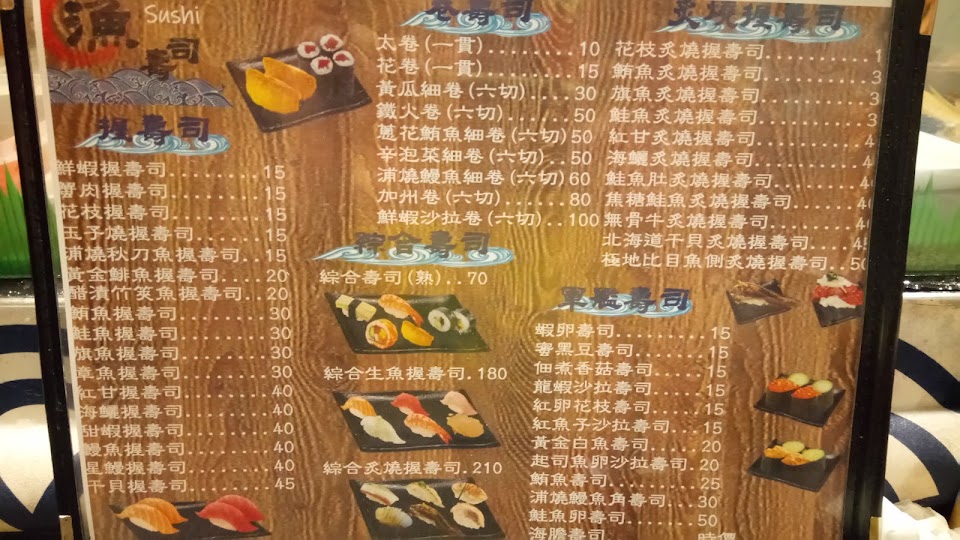 漁
Sushi
壽司
握壽司
鮮蝦握壽司........15
蟹肉握壽司........15
花枝握壽司........15
玉子燒握壽司......15
浦燒秋刀魚握壽司..15
黃金鯡魚握壽司....20
醋漬竹筴魚握壽司..20
鮪魚握壽司........30
鮭魚握壽司........30
旗魚握壽司........30
章魚握壽司........30
紅甘握壽司........40
海鱺握壽司........40
甜蝦握壽司........40
鰻魚握壽司........40
星鰻握壽司........40
干貝握壽司........45
卷壽司
太卷(一貫)........10
花卷(一貫)........15
黃瓜細卷(六切)....30
鐵火卷(六切)......50
蔥花鮪魚細卷(六切)50
辛泡菜細卷(六切)..50
浦燒鰻魚細卷(六切)60
加州卷(六切)......80
鮮蝦沙拉卷(六切)..100
綜合壽司
綜合壽司(熟)..70
綜合生魚握壽司.180
綜合炙燒握壽司.210
炙燒握壽司
花枝炙燒握壽司
鮪魚炙燒握壽司
旗魚炙燒握壽司
鮭魚炙燒握壽司
紅甘炙燒握壽司
海鱺炙燒握壽司
鮭魚肚炙燒握壽司
焦糖鮭魚炙燒握壽司
無骨牛炙燒握壽司
北海道干貝炙燒握壽司
極地比目魚側炙燒握壽司..50
軍艦壽司
蝦卵壽司........15
蜜黑豆壽司......15
佃煮香菇壽司....15
龍蝦沙拉壽司....15
紅卵花枝壽司....15
紅魚子沙拉壽司..15
黃金白魚壽司....20
起司魚卵沙拉壽司.20
鮪魚壽司........25
浦燒鰻魚角壽司..30
鮭魚卵壽司......50
海膽壽司......時價